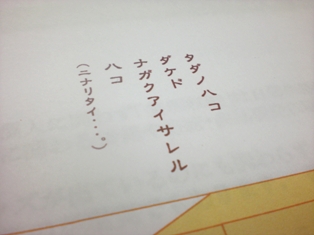 タダノハコ
ダケド
ナガクアイサレル
ハコ
(ニナリタイ・・・。)